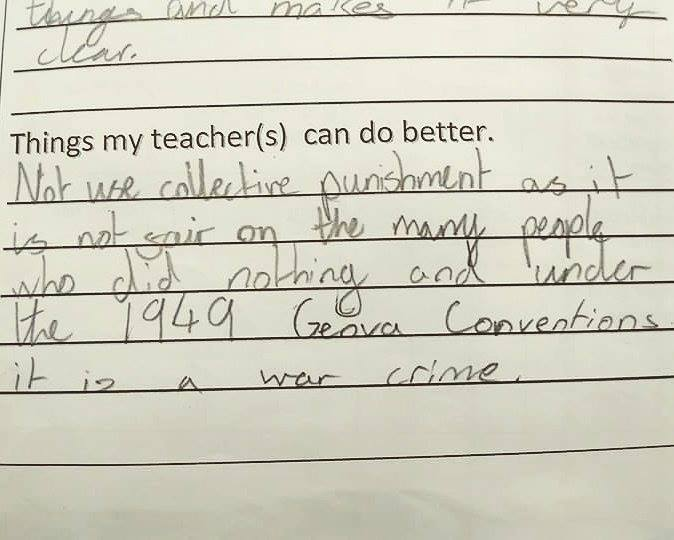 things and makes it very
clear.
Things my teacher(s) can do better.
Not use collective punishment as it
is not fair on the many people
who did nothing and under
the 1949 Genva Conventions
it is a war crime.